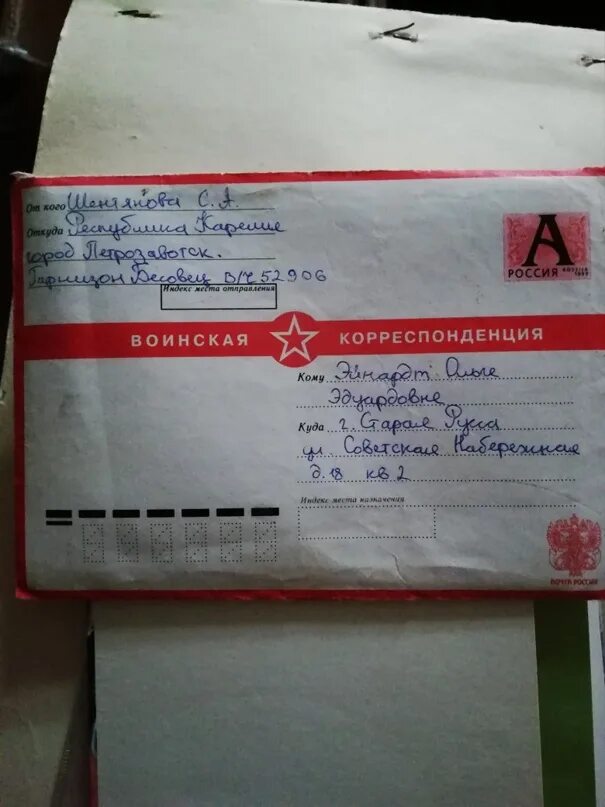 От кого Шентяпова С. А.
Откуда Республика Карелие
город Петрозавотск.
Гарнизон Бесовец В/Ч 52906
Индекс места отправления
А
РОССИЯ
ВОИНСКАЯ КОРРЕСПОНДЕНЦИЯ
Кому Эйнардт Ольге
Эдуардовне
Куда г. Старая Русса
ул. Советская Набережная
д. 18 кв. 2
Индекс места назначения
ПОЧТА РОССИИ